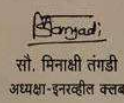 सौ. मिनाक्षी तंगडी
अध्यक्षा-इनरव्हील क्लब